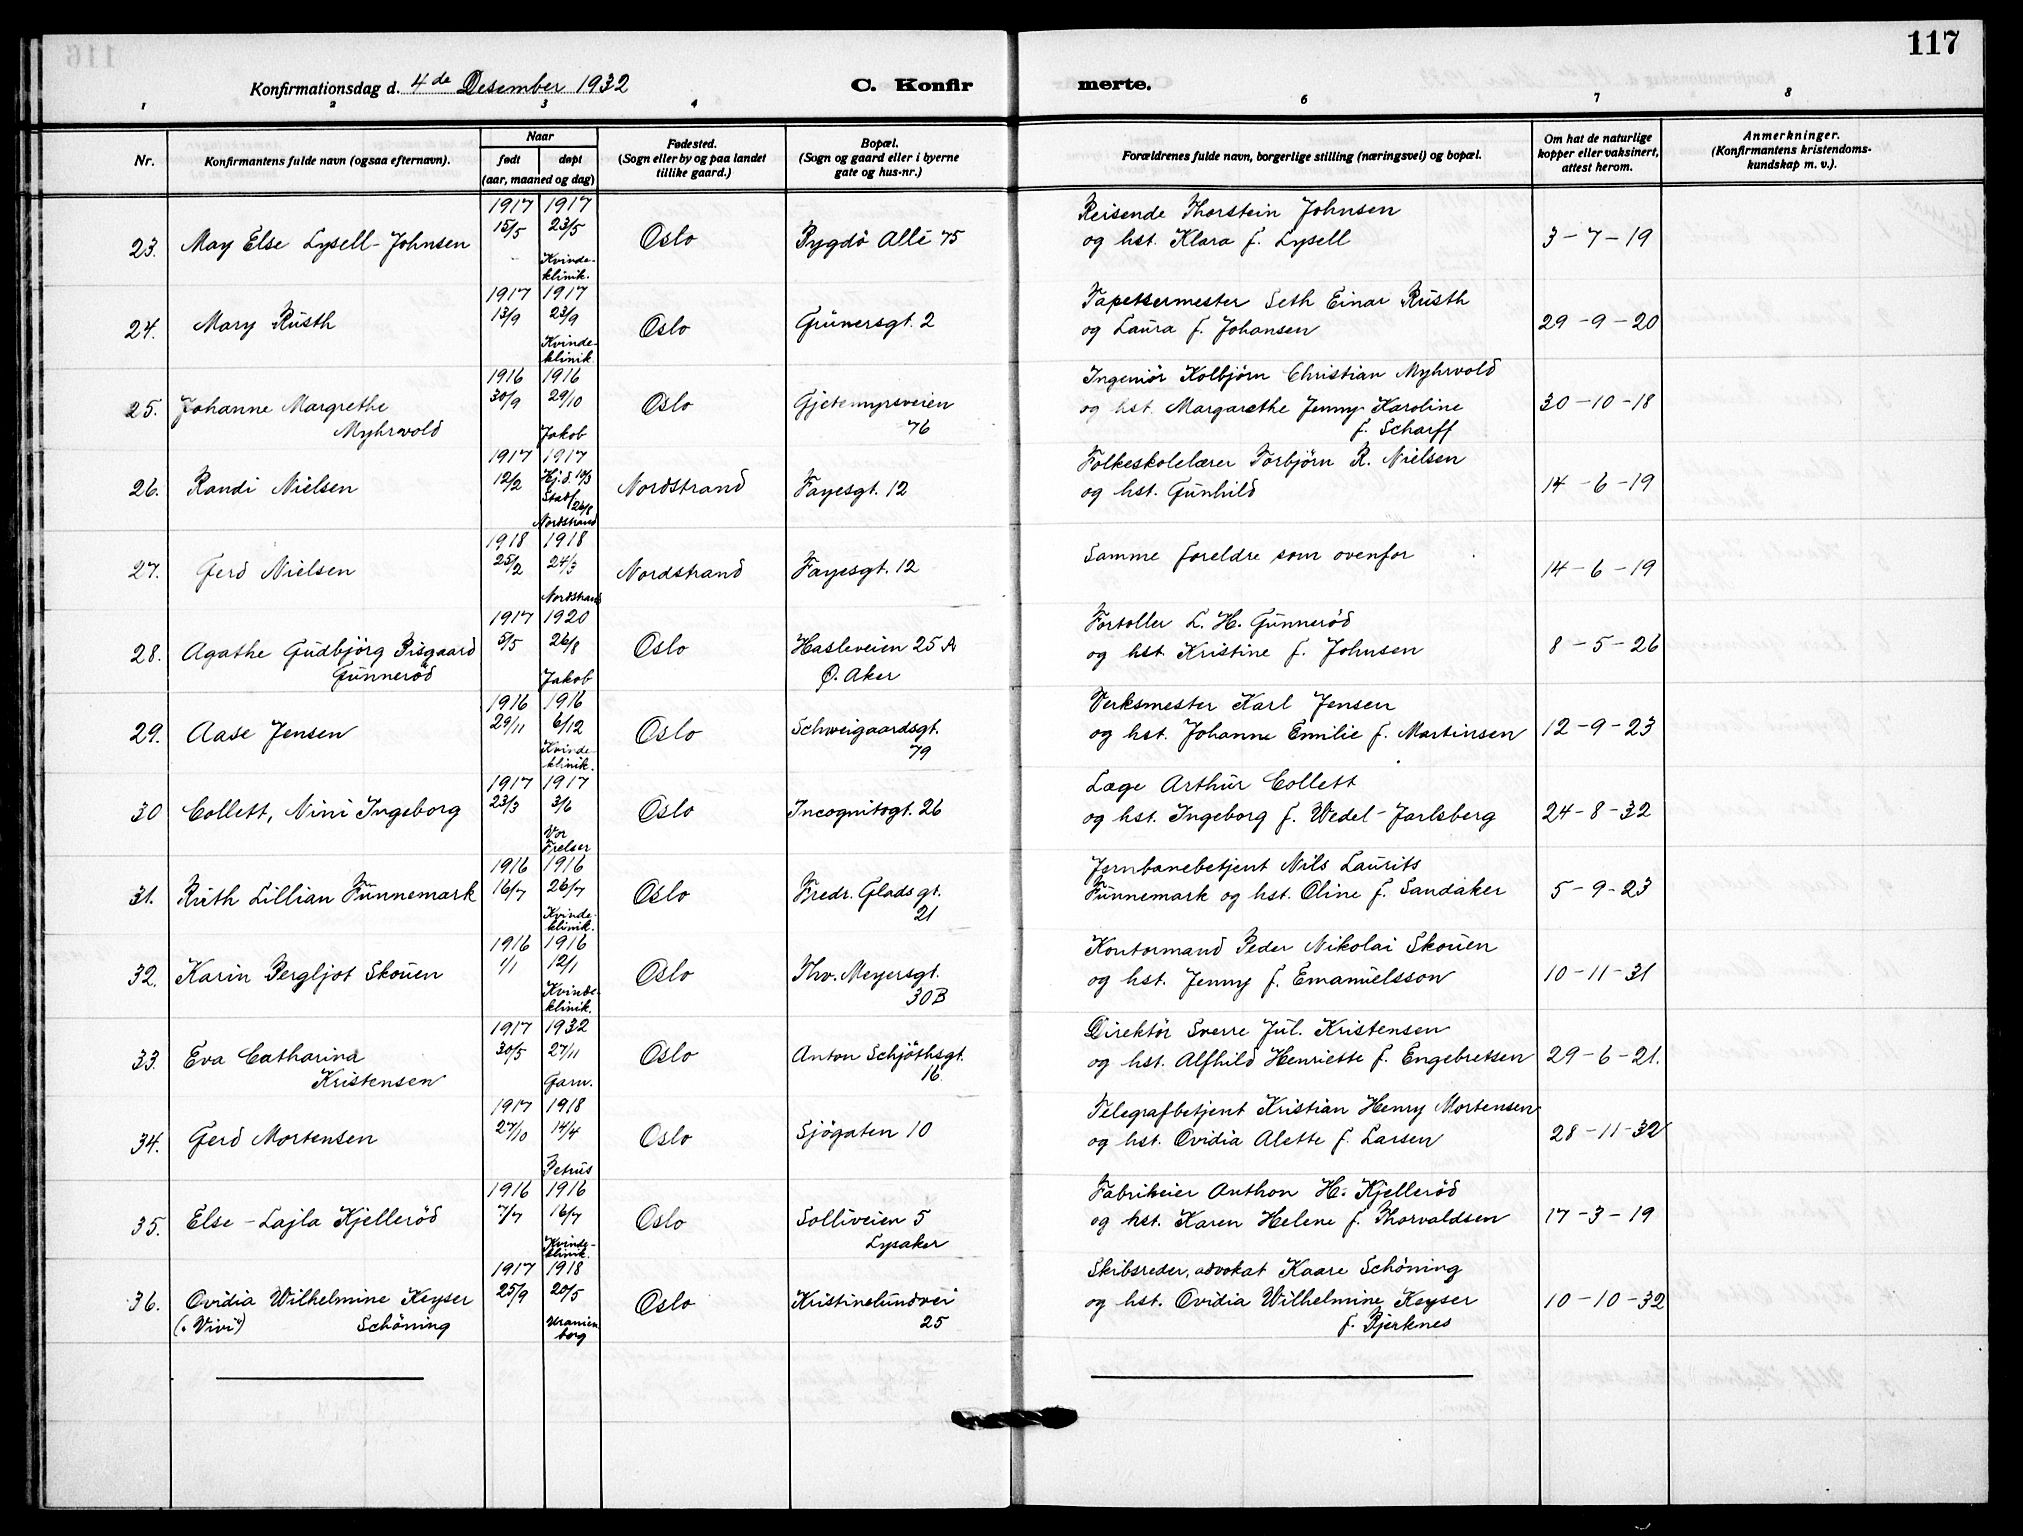 117
Konfirmationsdag d. 4de Desember 1932 C. Konfir merte.
1 2 3 4 6 7 8
Nr.
Konfirmantens fulde navn (ogsaa efternavn).
Naar
født døpt
(aar, maaned og dag)
Fødested.
(Sogn eller by og paa landet
tillike gaard.)
Bopæl.
(Sogn og gaard eller i byerne
gate og hus-nr.)
Forældrenes fulde navn, borgerlige stilling (næringsvei) og bopæl.
Om hat de naturlige
kopper eller vaksinert,
attest herom.
Anmerkninger.
(Konfirmantens kristendoms-
kundskap m. v.).
1917 1917 Reisende Thorstein Johnsen
23. May Else Lysell-Johnsen 15/5 23/5 Oslo Bygdö Allé 75 og hst. Klara f. Lysell 3-7-19
Kvinde-
klinik.
1917 1917 Tapetsermester Seth Einar Rusth
24. Mary Rusth 13/9 23/9 Oslo Grünersgt. 2 og Laura f. Johansen 29-9-20
Kvinde-
klinik
1916 1916 Ingeniör Kolbjörn Christian Myhrvold
25. Johanne Margrethe 30/9 29/10 Oslo Gjetemyrsveien og hst. Margarethe Jenny Karoline 30-10-18
Myhrvold Jakob 76 f. Scharff
1917 1917 Folkeskolelærer Torbjörn R. Nielsen
26. Randi Nielsen 12/2 Hj.d. 10/3 Nordstrand Fayesgt. 12 og hst. Gunhild 14-6-19
Stadf
26/8
Nordstrand
1918 1918 Samme foreldre som ovenfor
27. Gerd Nielsen 25/2 24/3 Nordstrand Fayesgt. 12 14-6-19
Nordstrand
1917 1920 Fortoller L. H. Gunneröd
28. Agathe Gudbjörg Risgaard 5/5 26/8 Oslo Hasleveien 25 A og hst. Kristine f. Johnsen 8-5-26
Gunneröd Jakob Ø. Aker
1916 1916 Verksmester Karl Jensen
29. Aase Jensen 29/11 6/12 Oslo Schweigaardsgt. og hst. Johanne Emilie f. Martinsen 12-9-23
Kvinde 79
klinik.
1917 1917 Læge Arthur Collett
30 Collett, Nini Ingeborg 23/3 3/6 Oslo Incognitogt. 26 og hst. Ingeborg f. Wedel-Jarlsberg 24-8-32
Vor
Frelser
1916 1916 Jernbanebetjent Nils Laurits
31. Ruth Lillian Funnemark 16/7 26/7 Oslo Fredr. Glads gt. Funnemark og hst. Oline f. Sandaker 5-9-23
Kvinde- 21
klinik.
1916 1916 Kontormand Peder Nikolai Skouen
32. Karin Bergljot Skouen 1/1 12/1 Oslo Thv. Meyersgt. og hst. Jenny f. Emanuelsson 10-11-31
Kvinde- 30B
klinik.
1917 1932 Direktör Sverre Jul. Kristensen
33. Eva Catharina 30/5 27/11 Oslo Anton Schjöthsgt. og hst. Alfhild Henriette f. Engebretsen 29-6-21.
Kristensen Garn. 16.
1917 1918 Telegrafbetjent Kristian Henry Mortensen
34. Gerd Mortensen 27/10 14/4 Oslo Sjögaten 10 og hst. Ovidia Alette f. Larsen 28-11-32
Petrus
1916 1916 Fabrikeier Anthon H. Kjelleröd
35. Else-Lajla Kjelleröd 7/7 16/7 Oslo Solliveien 5 og hst. Karen Helene f. Thorvaldsen 17-3-19
Kvinde- Lysaker
klinik.
1917 1918 Skibsreder, advokat Kaare Schöning
36. Ovidia Wilhelmine Keyser 25/9 20/5 Oslo Kristinelundvei og hst. Ovidia Wilhelmine Keyser 10-10-32
("Vivi") Schöning Uranien 25 f. Bjerknes
borg